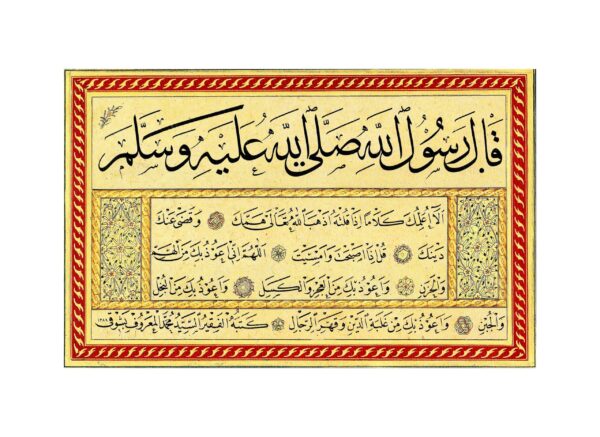 قَالَ رَسُولُ اللهِ صَلَّى اللهُ عَلَيْهِ وَسَلَّمَ
اَلَا اُعَلِّمُكَ كَلَامًا اِذَا قُلْتَهُ اَذْهَبَ اللهُ تَعَالَى هَمَّكَ وَقَضَى عَنْكَ
دَيْنَكَ قُلْ اِذَا اَصْبَحْتَ وَاَمْسَيْتَ اَللّٰهُمَّ اِنِّى اَعُوذُ بِكَ مِنَ الْهَمِّ
وَالْحَزَنِ وَاَعُوذُ بِكَ مِنَ الْعَجْزِ وَالْكَسَلِ وَاَعُوذُ بِكَ مِنَ الْبُخْلِ
وَالْجُبْنِ وَاَعُوذُ بِكَ مِنْ غَلَبَةِ الدَّيْنِ وَقَهْرِ الرِّجَالِ كَتَبَهُ الْفَقِيرُ السَّيِّدُ مُحَمَّدُ الْمَعْرُوفُ بِشَوْقِى